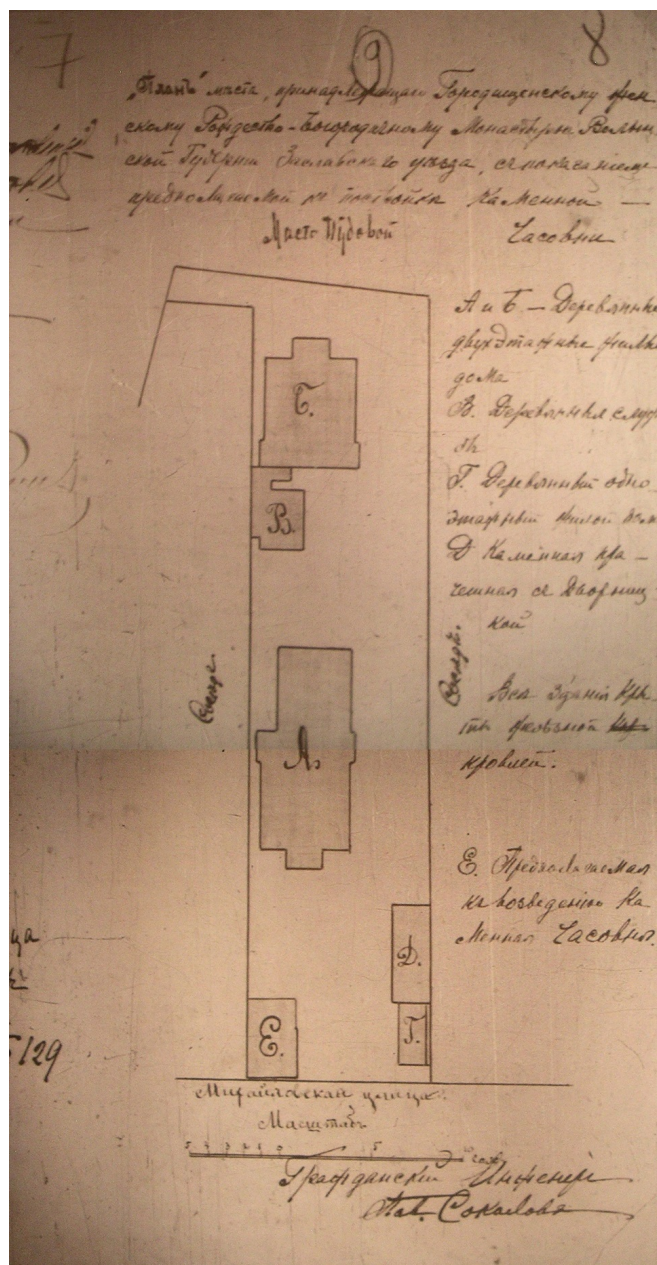 7
9
8
„Планъ" места, принадлежащаго Городищенскому жен
скому Рождество-Богородичному Монастырю Волын
ской Губернiи Заславскаго уѣзда, съ показанiем
предполагаемой къ постройкѣ Каменной —
Часовни
Место Пудовой
А и Б — Деревянные
двухэтажные жилые
дома
В. Деревянныя служ
бы
Г. Деревянный одно
этажный жилой дом
Д Каменная пра —
чешная съ Дворниц
кой
Все зданiя кры
ты желѣзной
кровлей.
Е. Предполагаемая
къ возведенiю Ка
менная Часовня.
Б.
В.
Соседъ.
Соседъ.
А.
Д.
Г.
Е.
ца
129
Михайловская улица
Масштабъ
5 4 3 2 1 0 5
Гражданскiй Инженеръ
Соколовъ